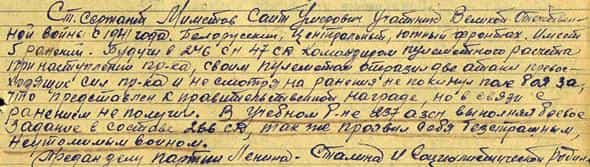 Ст. Сержант Маметов Саит Умерович участник Великой Отечествен-
ной войны с 1941 года. Белорусский, Центральный, Южный фронтах. Имеет
5 ранений. Будучи в 246 сп 47 СК командиром пулеметного расчета
при наступлении пр-ка, своим пулеметом отразил две атаки превос-
ходящих сил пр-ка и не смотря на ранения не покинул поле боя за,
что представлен к правительственной награде, но в связи с
ранением не получил. В учебном б-не 237 азсп выполняя боевое
задание в составе 266 СП, так же проявил себя бесстрашным,
неутомимым воином.
Предан делу партии Ленина - Сталина и Социалистической Родине